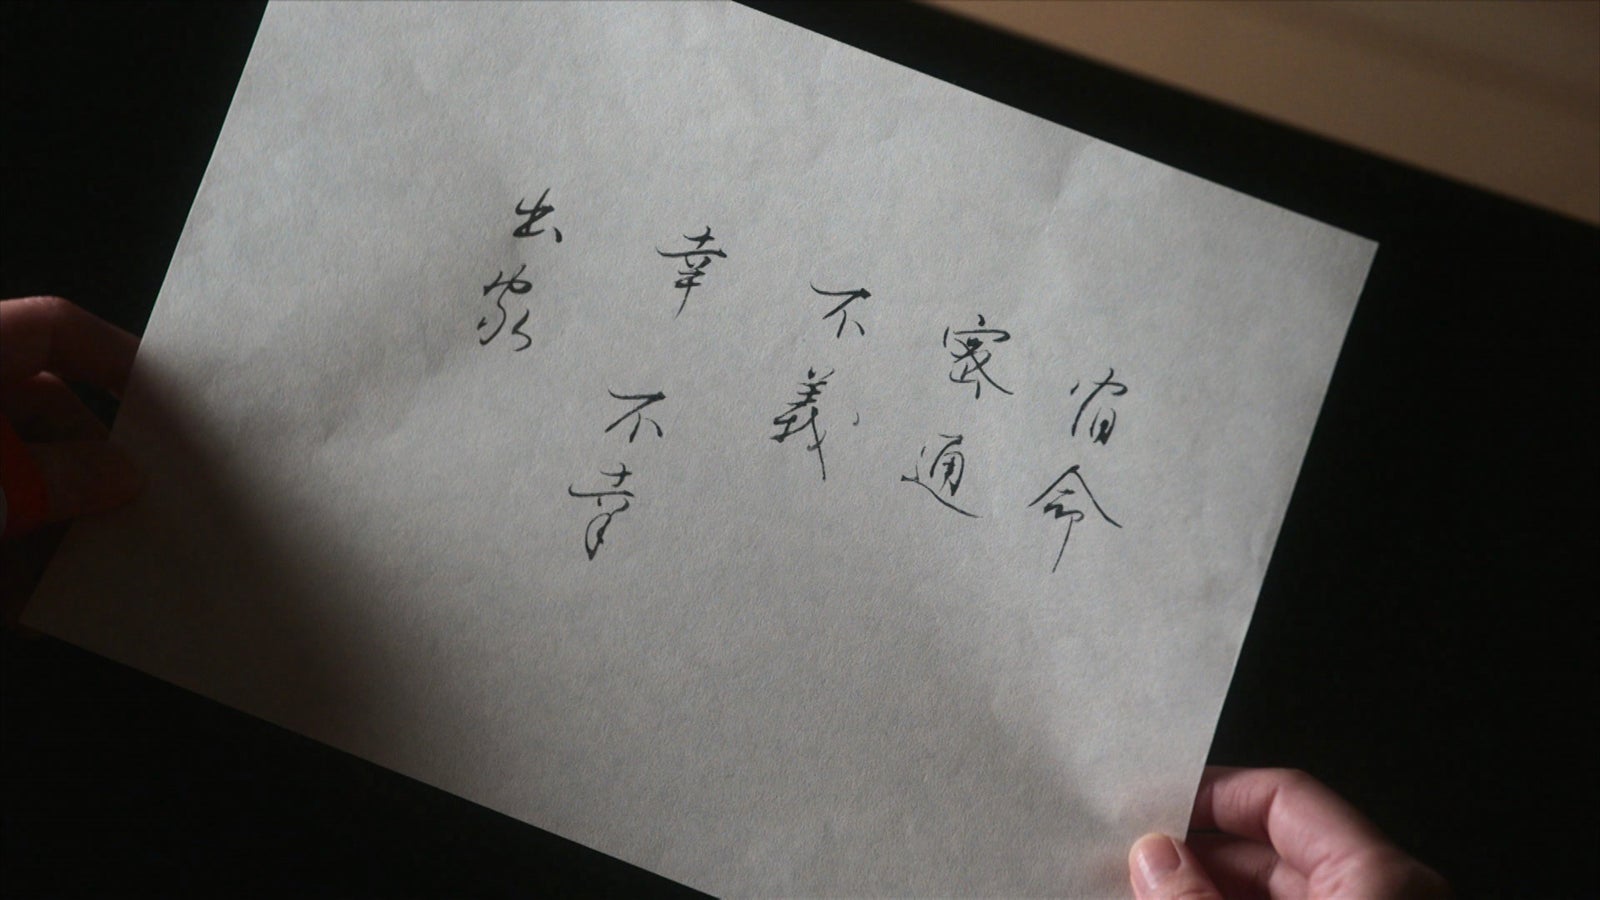 宿命
密通
不義
幸 不幸
出家